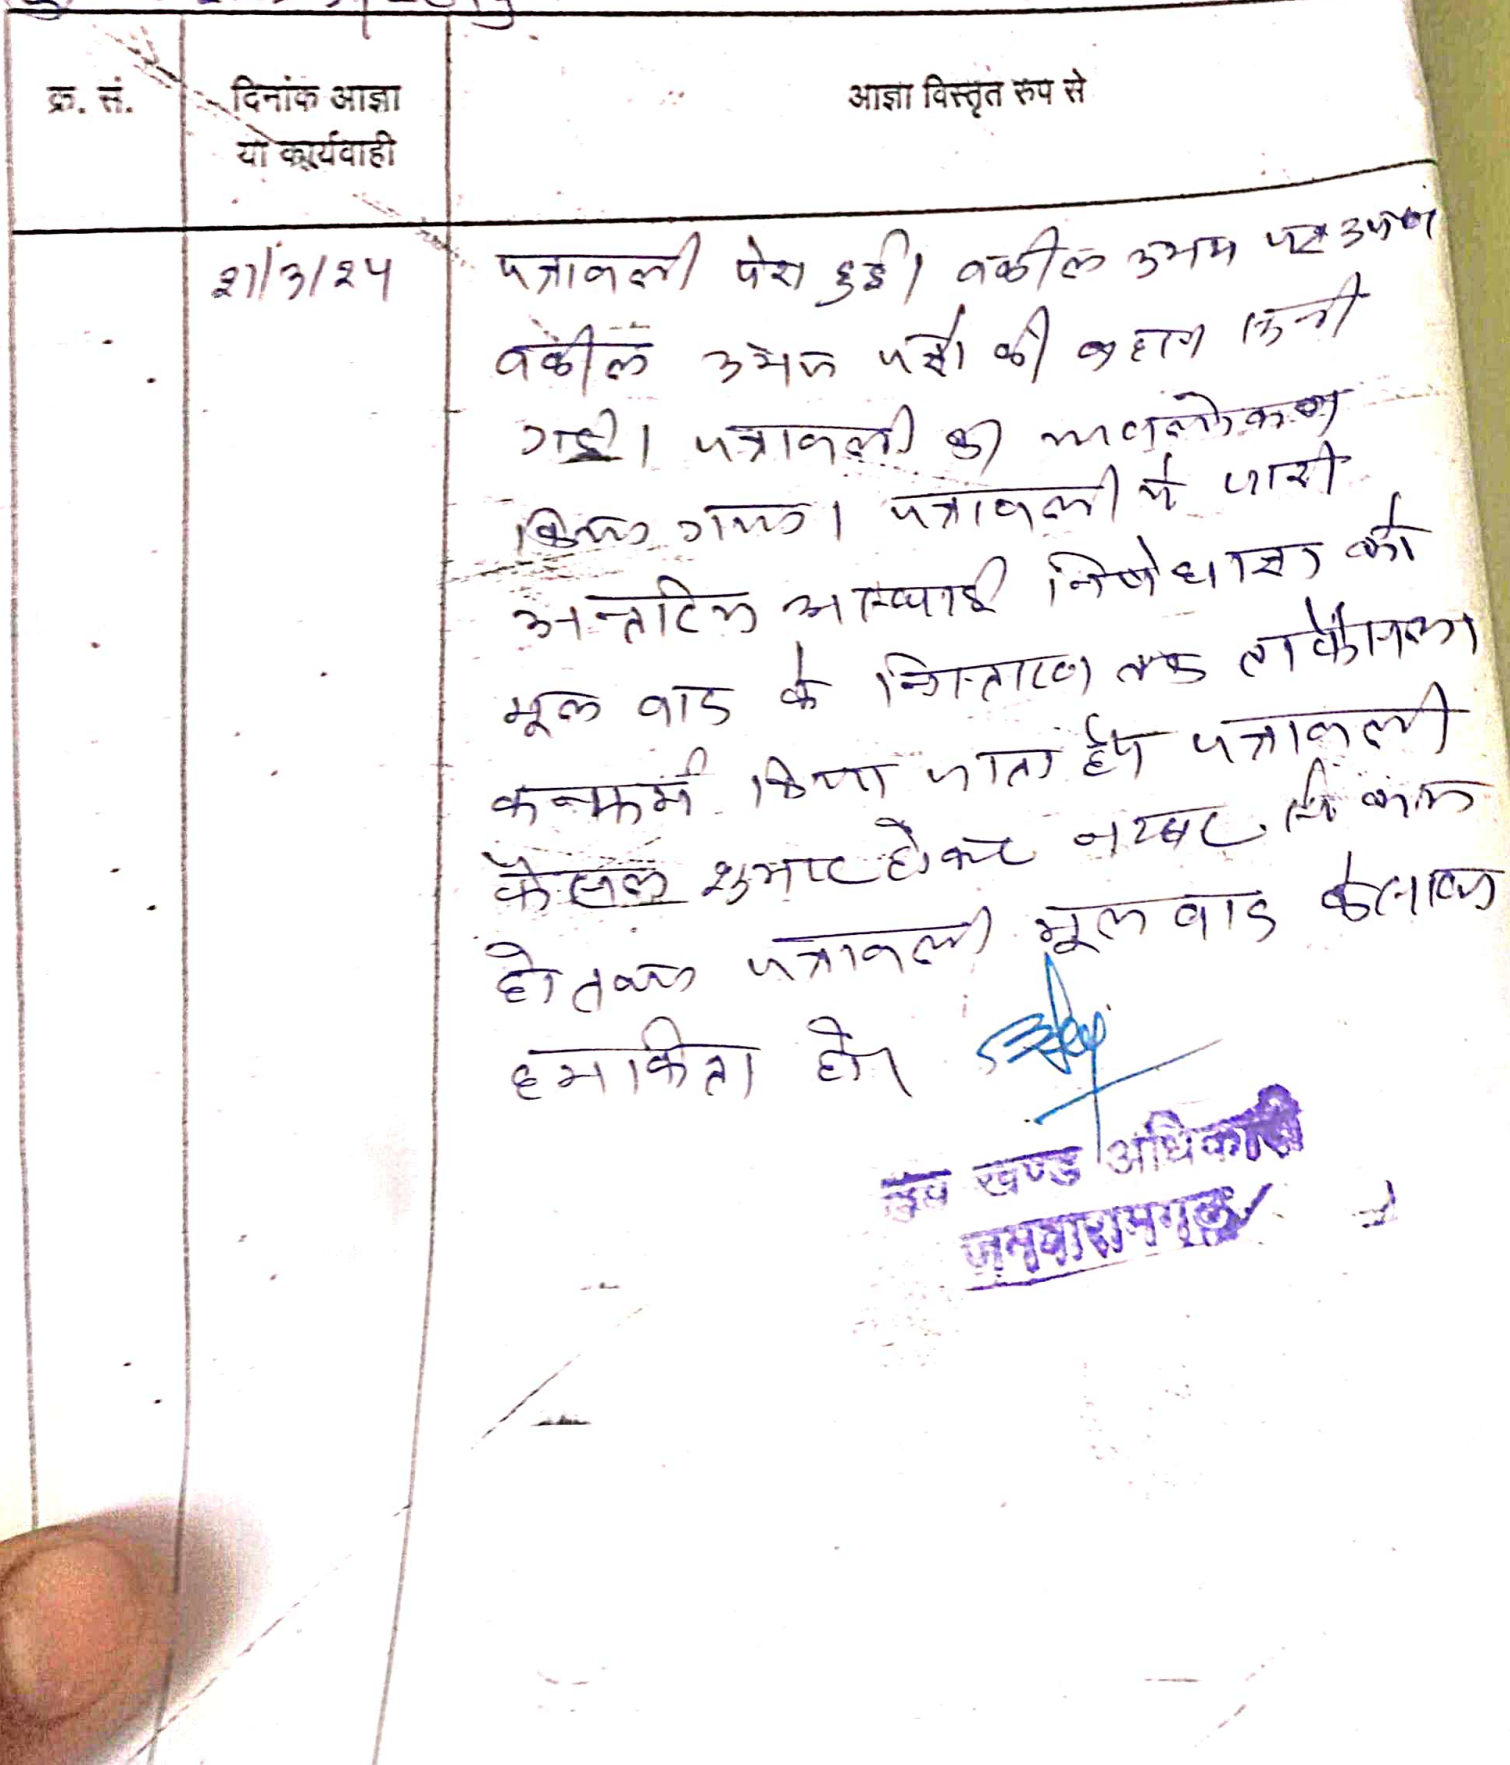 क्र. सं.
दिनांक आज्ञा
या कार्यवाही
आज्ञा विस्तृत रुप से
21/3/24
पत्रावली पेश हुई। वकील उभय पक्ष उप०
वकील उभय पक्षो की बहस सुनी
गई। पत्रावली का अवलोकन
किया गया। पत्रावली मे जारी
अन्तरिम अस्थाई निषेधाज्ञा को
मूल वाद के निस्तारण तक ताफैसला
कन्फर्म किया जाता है। पत्रावली
फैसल शुमार होकर नम्बर से कम
हो तथा पत्रावली मूल वाद के साथ
हमकिता हो।
उप खण्ड अधिकारी
जमवारामगढ